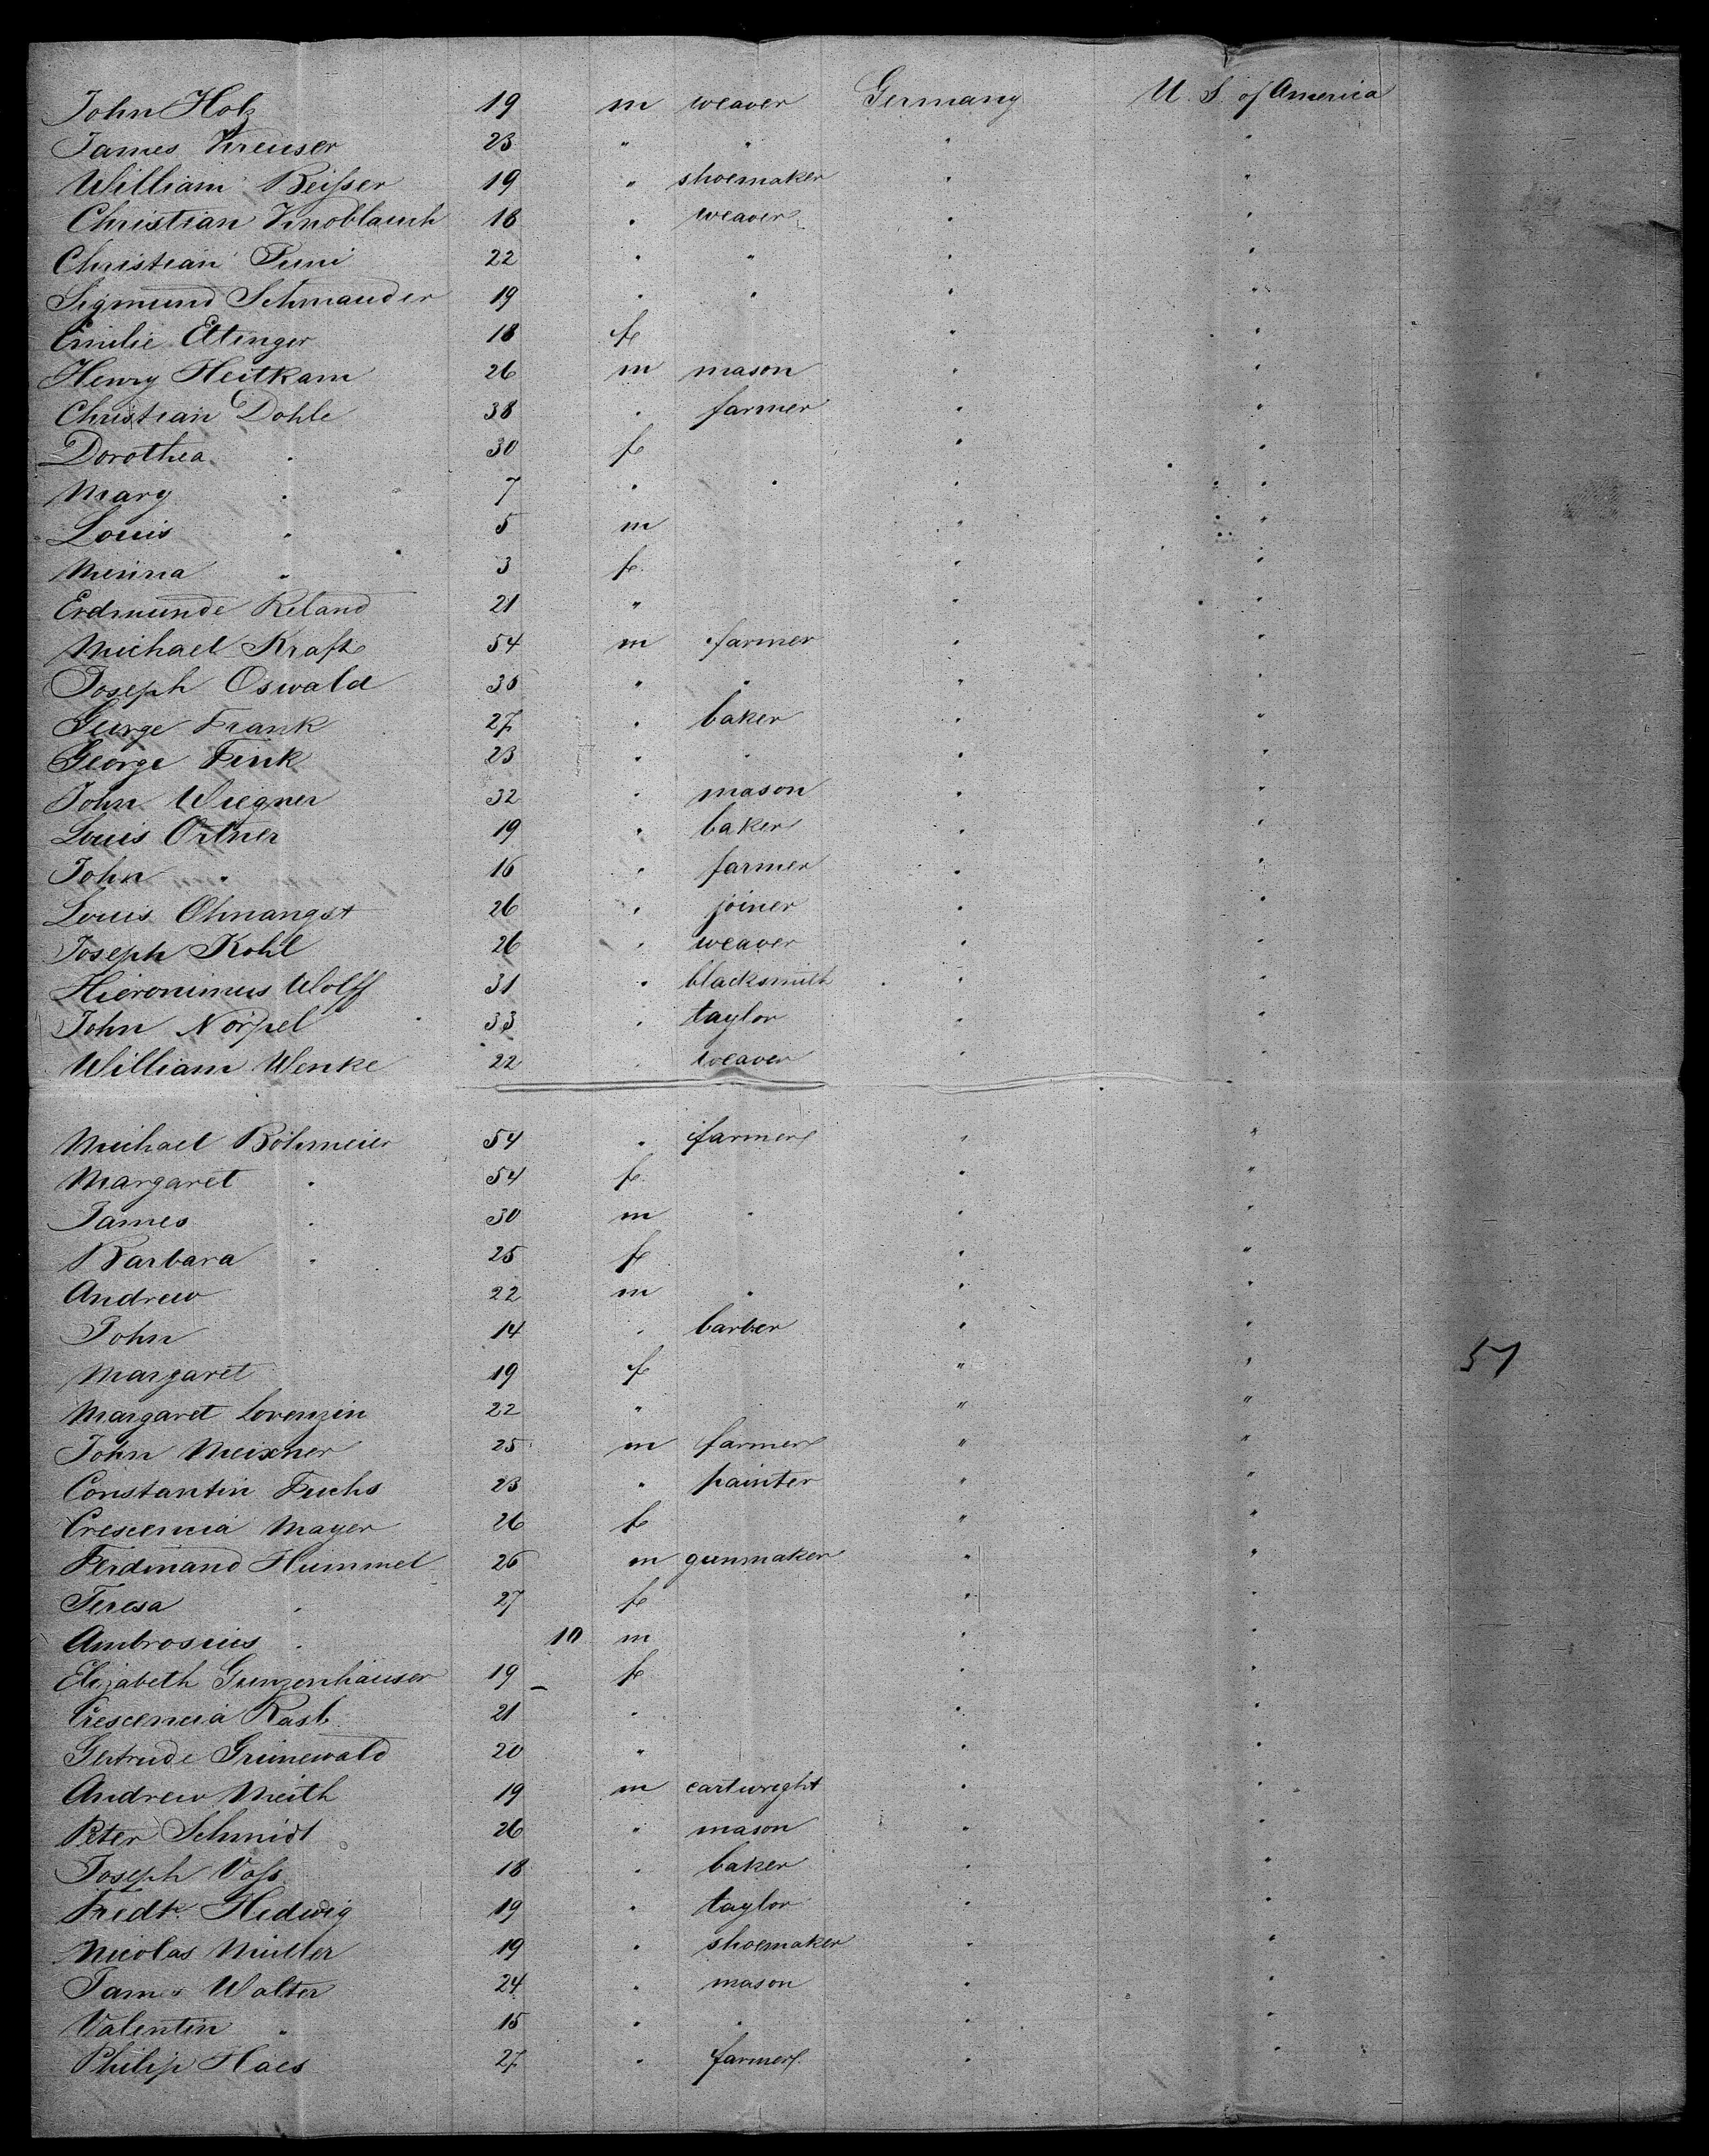 John Holz 19 m weaver Germany U. S. of America
James Kreuser 23 " " " "
William Beisser 19 " shoemaker " "
Christian Knoblauch 18 " weaver " "
Christian 22 " " " "
Sigmund Schmauder 19 " " " "
Emilie Ettinger 18 f " "
Henry Heitkam 26 m mason " "
Christian Dohle 38 " farmer " "
Dorothea " 30 f " "
Mary " 7 " " " "
Louis " 5 m " "
Minna " 3 f " "
Erdmunde Reland 21 " " "
Michael Kraft 54 m farmer " "
Joseph Oswald 36 " " " "
George Frank 27 " baker " "
George Fink 23 " " " "
John Wiegner 32 " mason " "
Louis Ortner 19 " baker " "
John " 16 " farmer " "
Louis Ohnangst 26 " joiner " "
Joseph Kohl 26 " weaver " "
Hieronimus Wolff 31 " blacksmith " "
John Nörpel 33 " taylor " "
William Wenke 22 " weaver " "
Michael Böhmeier 54 " farmer " "
Margaret " 54 f " "
James " 30 m " " "
Barbara " 25 f " "
Andrew 22 m " " "
John 14 " barber " "
Margaret 19 f " " 51
Margaret Lorenzin 22 " " "
John Meixner 25 m farmer " "
Constantin Fuchs 23 " painter " "
Crescencia Mayer 26 f " "
Ferdinand Hummel 26 m gunmaker " "
Teresa " 27 f " "
Ambrosius " 10 m " "
Elizabeth Gunzenhäuser 19 f " "
Crescencia Rast 21 " " "
Gertrude Grünewald 20 " " "
Andrew Meith 19 m cartwright " "
Peter Schmidt 26 " mason " "
Joseph Voss 18 " baker " "
Fredk. Hedwig 19 " taylor " "
Nicolas Müller 19 " shoemaker " "
James Walter 24 " mason " "
Valentin " 15 " " " "
Philip Haes 27 " farmer " "